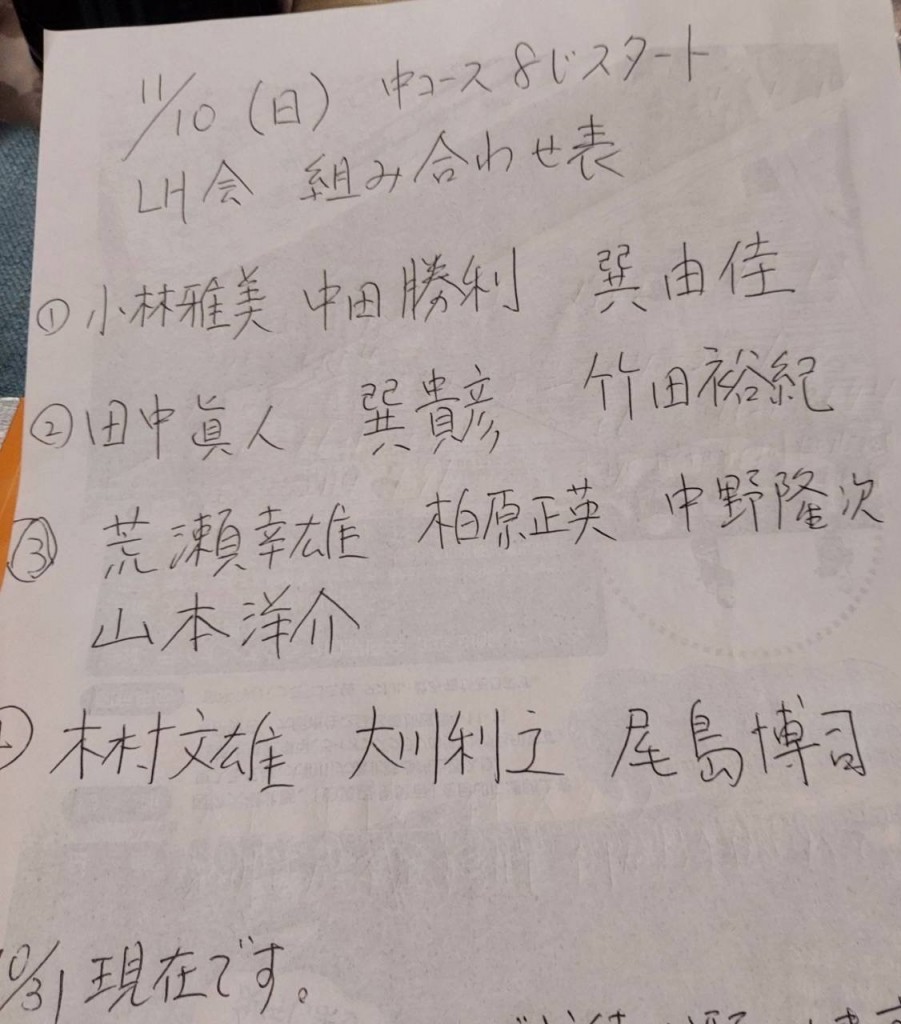 11/10（日） 中コース 8じスタート
LH会 組み合わせ表
①小林雅美 中田勝利 巽由佳
②田中眞人 巽貴彦 竹田裕紀
③ 荒瀬幸雄 柏原正英 中野隆次
山本洋介
木村文雄 大川利立 尾島博司
10/31 現在です。